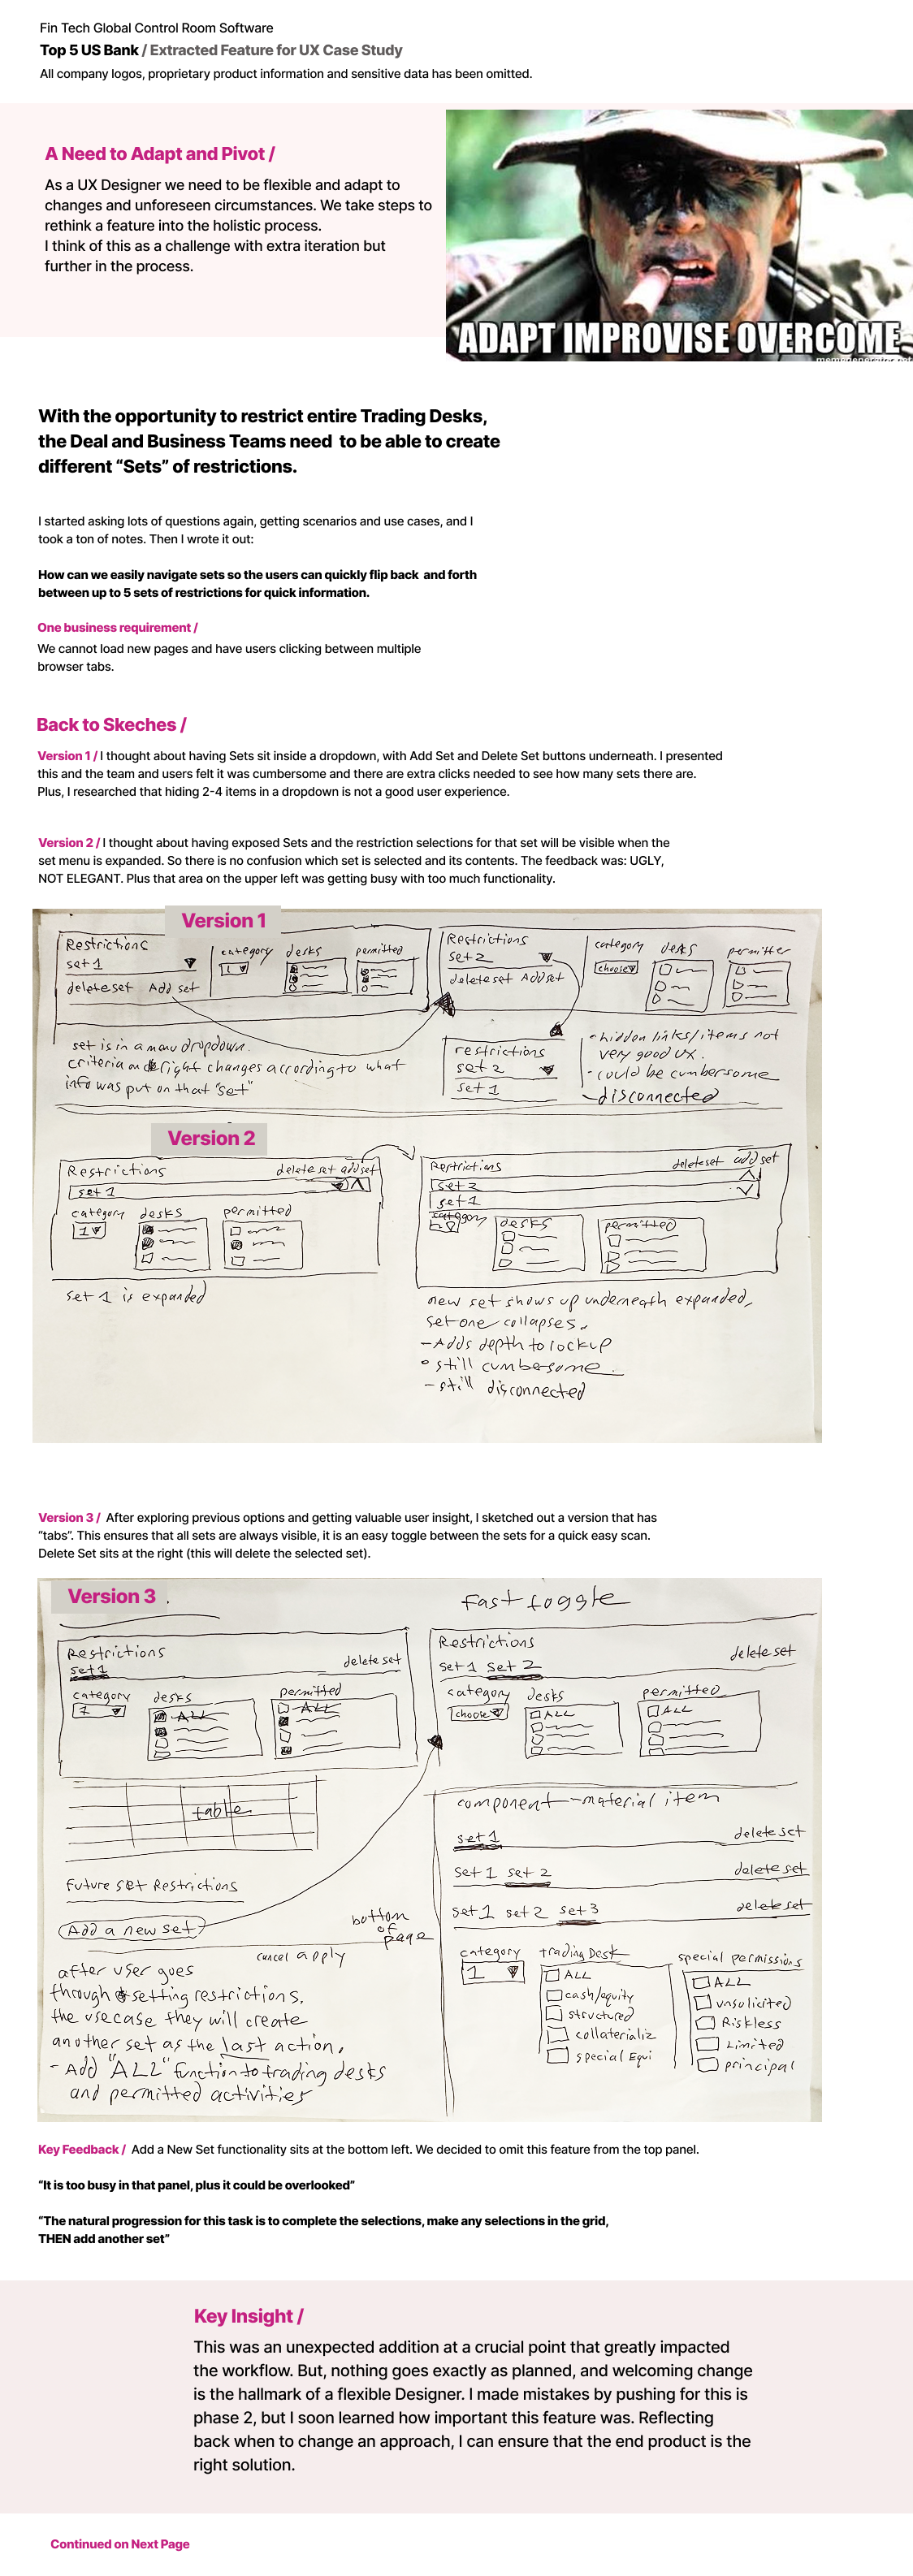 Fin Tech Global Control Room Software
Top 5 US Bank / Extracted Feature for UX Case Study
All company logos, proprietary product information and sensitive data has been omitted.
A Need to Adapt and Pivot /
As a UX Designer we need to be flexible and adapt to
changes and unforeseen circumstances. We take steps to
rethink a feature into the holistic process.
I think of this as a challenge with extra iteration but
further in the process.
ADAPT IMPROVISE OVERCOME
With the opportunity to restrict entire Trading Desks,
the Deal and Business Teams need to be able to create
different “Sets” of restrictions.
I started asking lots of questions again, getting scenarios and use cases, and I
took a ton of notes. Then I wrote it out:
How can we easily navigate sets so the users can quickly flip back and forth
between up to 5 sets of restrictions for quick information.
One business requirement /
We cannot load new pages and have users clicking between multiple
browser tabs.
Back to Skeches /
Version 1 / I thought about having Sets sit inside a dropdown, with Add Set and Delete Set buttons underneath. I presented
this and the team and users felt it was cumbersome and there are extra clicks needed to see how many sets there are.
Plus, I researched that hiding 2-4 items in a dropdown is not a good user experience.
Version 2 / I thought about having exposed Sets and the restriction selections for that set will be visible when the
set menu is expanded. So there is no confusion which set is selected and its contents. The feedback was: UGLY,
NOT ELEGANT. Plus that area on the upper left was getting busy with too much functionality.
Version 1
Restrictions
set 1
delete set Add set
category desks permitted
1
Restrictions
set 2
delete set Add set
category desks permitter
choose
set is in a menu dropdown.
criteria on right changes according to what
info was put on that "set"
restrictions
set 2
set 1
- hidden links/items not
very good ux.
- could be cumbersome
- disconnected
Version 2
Restrictions delete set add set
set 1
category desks permitted
1
set 1 is expanded
Restrictions delete set add set
set 2
set 1
category desks permitted
new set shows up underneath expanded,
set one collapses.
- Adds depth to lockup
• still cumbersome
- still disconnected
Version 3 / After exploring previous options and getting valuable user insight, I sketched out a version that has
“tabs”. This ensures that all sets are always visible, it is an easy toggle between the sets for a quick easy scan.
Delete Set sits at the right (this will delete the selected set).
Version 3
fast toggle
Restrictions
set 1 delete set
category desks permitted
ALL ALL
table
Future set Restrictions
Add a new set
bottom
of
page
cancel apply
after user goes
through setting restrictions,
the usecase they will create
another set as the last action.
- Add "ALL" function to trading desks
and permitted activities
Restrictions
set 1 set 2 delete set
category desks permitted
choose ALL ALL
component - material item
set 1 delete set
set 1 set 2 delete set
set 1 set 2 set 3 delete set
category trading Desk special permissions
1
ALL
cash/equity
structured
collaterializ
special Equi
ALL
unsolicited
Riskless
Limited
principal
Key Feedback / Add a New Set functionality sits at the bottom left. We decided to omit this feature from the top panel.
“It is too busy in that panel, plus it could be overlooked”
“The natural progression for this task is to complete the selections, make any selections in the grid,
THEN add another set”
Key Insight /
This was an unexpected addition at a crucial point that greatly impacted
the workflow. But, nothing goes exactly as planned, and welcoming change
is the hallmark of a flexible Designer. I made mistakes by pushing for this is
phase 2, but I soon learned how important this feature was. Reflecting
back when to change an approach, I can ensure that the end product is the
right solution.
Continued on Next Page